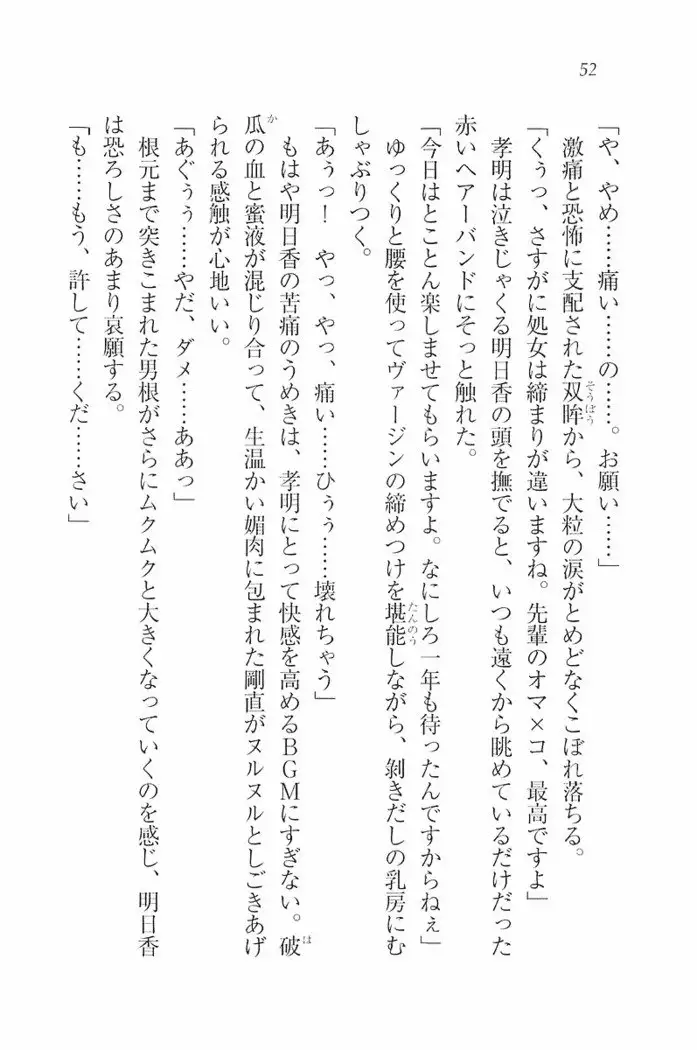 52
「や、やめ……痛い……の……。お願い……」
激痛と恐怖に支配された双眸から、大粒の涙がとめどなくこぼれ落ちる。
「くぅっ、さすがに処女は締まりが違いますね。先輩のオマ×コ、最高ですよ」
孝明は泣きじゃくる明日香の頭を撫でると、いつも遠くから眺めているだけだった
赤いヘアーバンドにそっと触れた。
「今日はとことん楽しませてもらいますよ。なにしろ一年も待ったんですからねぇ」
ゆっくりと腰を使ってヴァージンの締めつけを堪能しながら、剝きだしの乳房にむ
しゃぶりつく。
「あぅっ！　やっ、やっ、痛い……ひぅぅ……壊れちゃう」
もはや明日香の苦痛のうめきは、孝明にとって快感を高めるBGMにすぎない。破
瓜の血と蜜液が混じり合って、生温かい媚肉に包まれた剛直がヌルヌルとしごきあげ
られる感触が心地いい。
「あぐぅぅ……やだ、ダメ……ああっ」
根元まで突きこまれた男根がさらにムクムクと大きくなっていくのを感じ、明日香
は恐ろしさのあまり哀願する。
「も……もう、許して……くだ……さい」